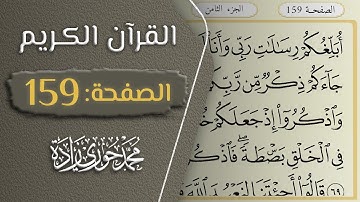 القرآن الكريم
الصفحة: 159
محمد
زادة
الصفحة 159
الجزء الثامن
أُبَلِّغُكُمْ رِسَٰلَٰتِ رَبِّي وَأَنَا۠
جَآءَكُمْ ذِكْرٌ مِّن رَّبِّكُمْ
وَٱذْكُرُوٓا۟ إِذْ جَعَلَكُمْ
فِي ٱلْخَلْقِ بَصْۜطَةً ۖ فَٱذْكُر
٦٩ قَالُوٓا۟ أَجِئْتَنَا لِنَعْبُدَ ٱللَّهَ